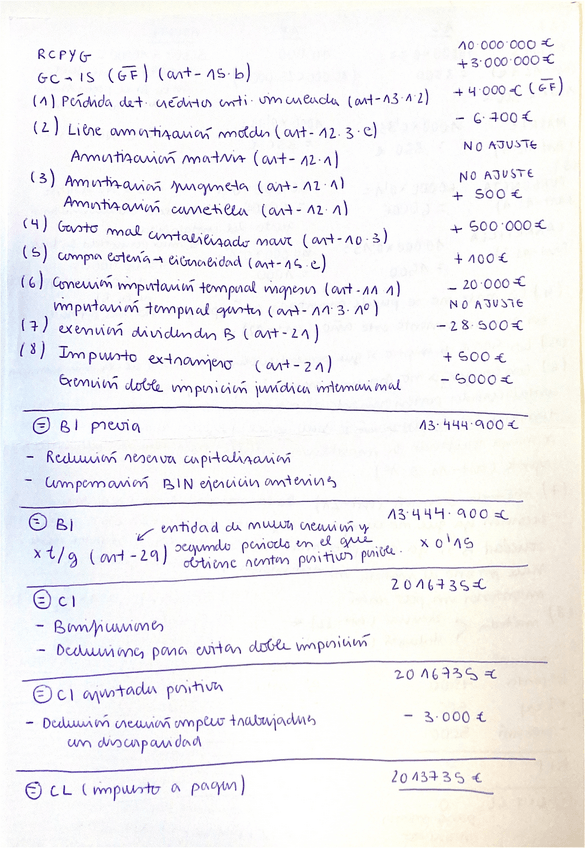 RCPYG 10.000.000 €
GC → IS (GF) (art-15.b) +3.000.000 €
(1) Pérdida det. créditos enti. vinculada (art-13.1.2) +4.000 € (GF)
(2) Libre amortización moldes (art-12.3.e) - 6.700 €
Amortización matriz (art-12.1) NO AJUSTE
(3) Amortización furgoneta (art-12.1) NO AJUSTE
Amortización carretilla (art-12.1) + 500€
(4) Gasto mal contabilizado nave (art-10.3) + 500.000€
(5) compra lotería → liberalidad (art-15.e) + 100€
(6) Corrección imputación temporal ingresos (art-11.1) - 20.000€
imputación temporal gastos (art-11.3.1º) NO AJUSTE
(7) exención dividendos B (art-21) - 28.500€
(8) Impuesto extranjero (art-21) + 500€
Exención doble imposición jurídica internacional - 5000€
= BI previa 13.444.900€
- Reducción reserva capitalización
- Compensación BIN ejercicios anteriores
= BI 13.444.900€
entidad de nueva creación y
x t/g (art-29) segundo periodo en el que x 0'15
obtiene rentas positivas
= CI 2016735€
- Bonificaciones
- Deducciones para evitar doble imposición
= CI ajustada positiva 2016735€
- Deducción creación empleo trabajadores - 3.000€
con discapacidad
= CL (impuesto a pagar) 2013735€